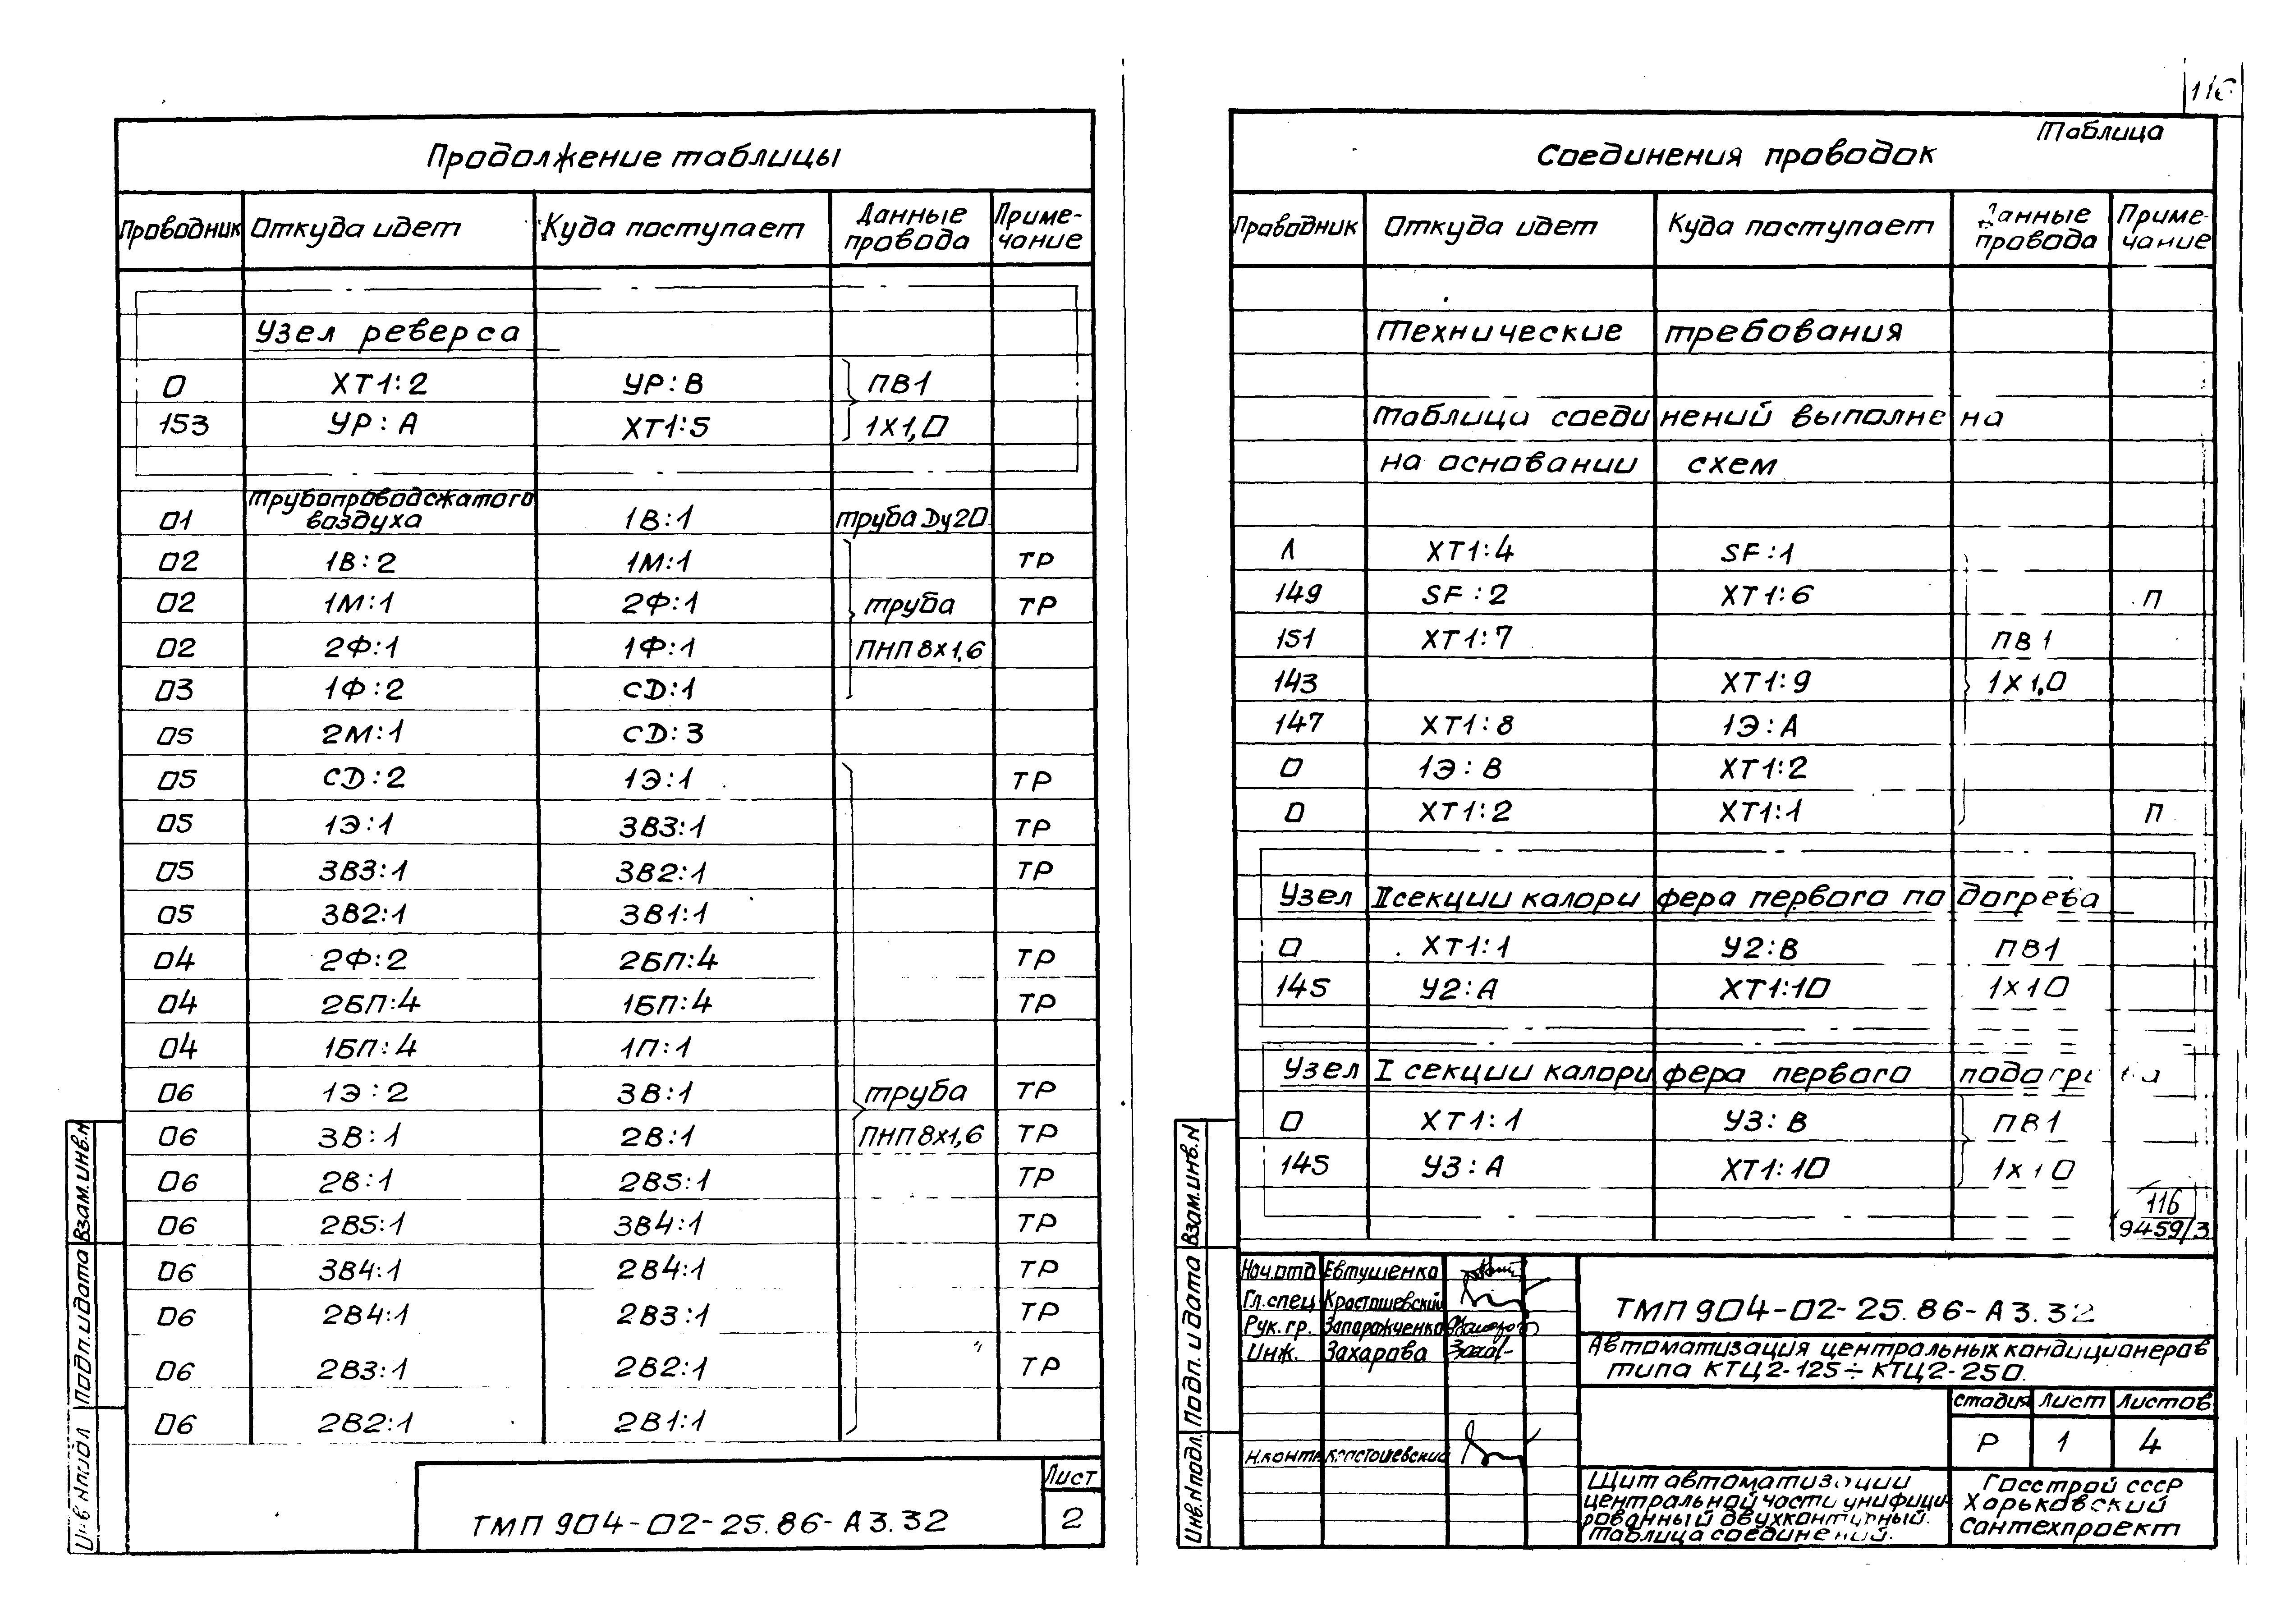 Продолжение таблицы
Проводник Откуда идет Куда поступает Данные провода Приме-чание
Узел реверса
0 ХТ1:2 УР:В ПВ1
153 УР:А ХТ1:5 1Х1,0
01 Трубопровод сжатого воздуха 1В:1 труба Ду20
02 1В:2 1М:1 ТР
02 1М:1 2Ф:1 труба ТР
02 2Ф:1 1Ф:1 ПНП 8х1,6
03 1Ф:2 СD:1
05 2М:1 СD:3
05 СD:2 1Э:1 ТР
05 1Э:1 3В3:1 ТР
05 3В3:1 3В2:1 ТР
05 3В2:1 3В1:1
04 2Ф:2 2БП:4 ТР
04 2БП:4 1БП:4 ТР
04 1БП:4 1П:1
06 1Э:2 3В:1 труба ТР
06 3В:1 2В:1 ПНП 8х1,6 ТР
06 2В:1 2В5:1 ТР
06 2В5:1 3В4:1 ТР
06 3В4:1 2В4:1 ТР
06 2В4:1 2В3:1 ТР
06 2В3:1 2В2:1 ТР
06 2В2:1 2В1:1
Взам.инв.N
Подп.и дата
Инв.N подл
ТМП 904-02-25.86-А3.32
Лист
2
116
Таблица
Соединения проводок
Проводник Откуда идет Куда поступает Данные провода Приме-чание
Технические требования
Таблица соединений выполнена
на основании схем
Л ХТ1:4 SF:1
149 SF:2 ХТ1:6 П
151 ХТ1:7 ПВ1
143 ХТ1:9 1Х1,0
147 ХТ1:8 1Э:А
0 1Э:В ХТ1:2
0 ХТ1:2 ХТ1:1 П
Узел II секции калорифера первого подогрева
0 ХТ1:1 У2:В ПВ1
145 У2:А ХТ1:10 1х10
Узел I секции калорифера первого подогрева
0 ХТ1:1 У3:В ПВ1
145 У3:А ХТ1:10 1х10
116
9459/3
Взам.инв.N
Подп. и дата
Инв.N подл.
Нач.отд Евтушенко
Гл.спец Красташевский
Рук.гр. Запорожченко
Инж. Захарова
Н.контр Красташевский
ТМП 904-02-25.86-А3.32
Автоматизация центральных кондиционеров
типа КТЦ2-125÷КТЦ2-250.
Стадия Лист Листов
Р 1 4
Щит автоматизации
центральной части унифици-
рованный двухконтурный.
Таблица соединений.
Госстрой СССР
Харьковский
Сантехпроект